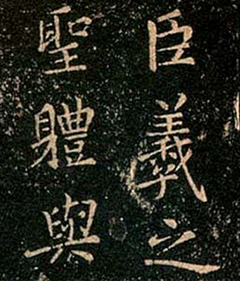 臣羲之
聖體與